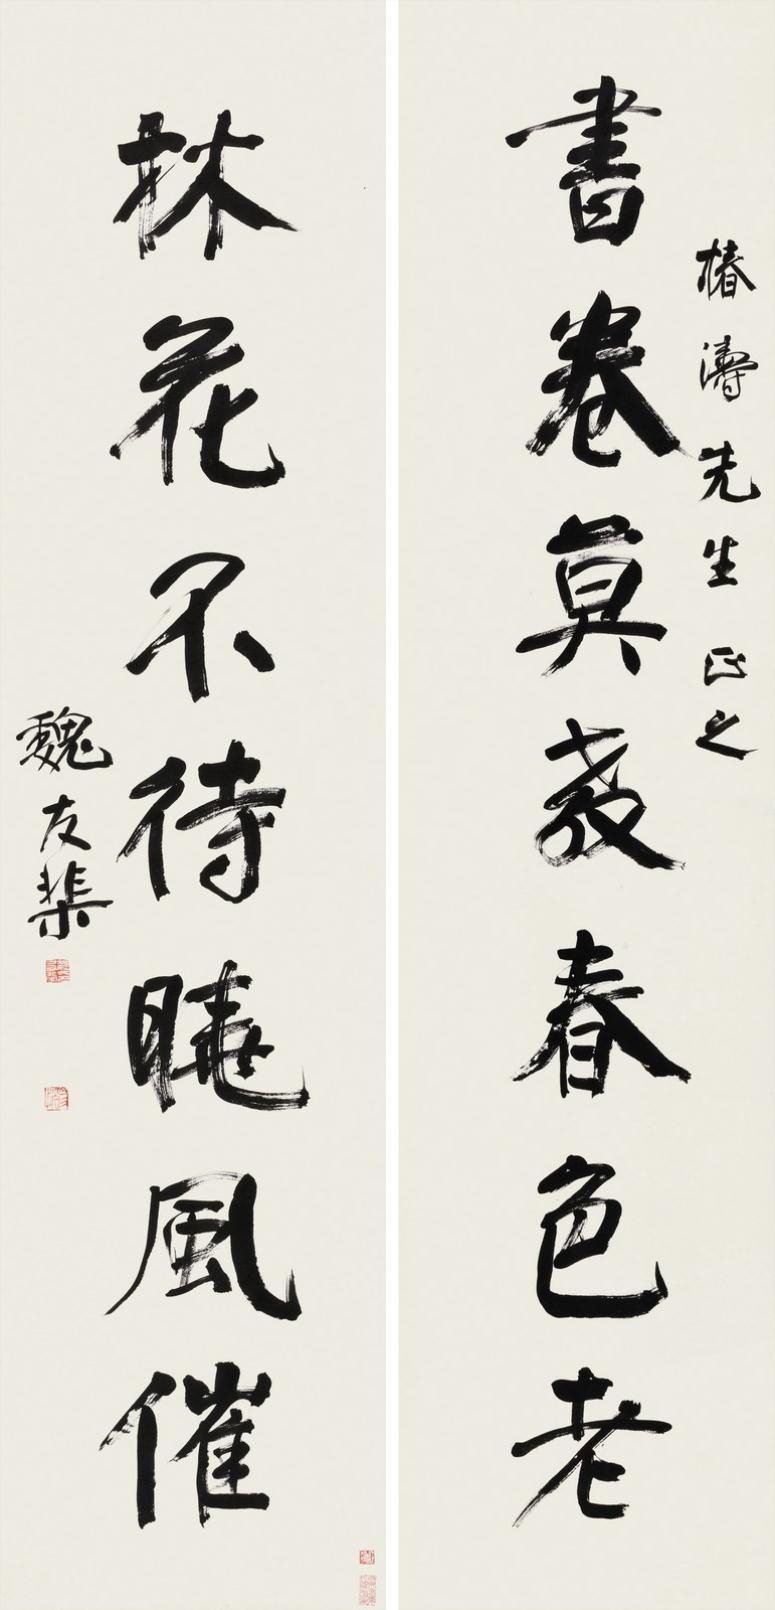 椿濤先生正之
書卷莫教春色老
林花不待曉風催
魏友棐